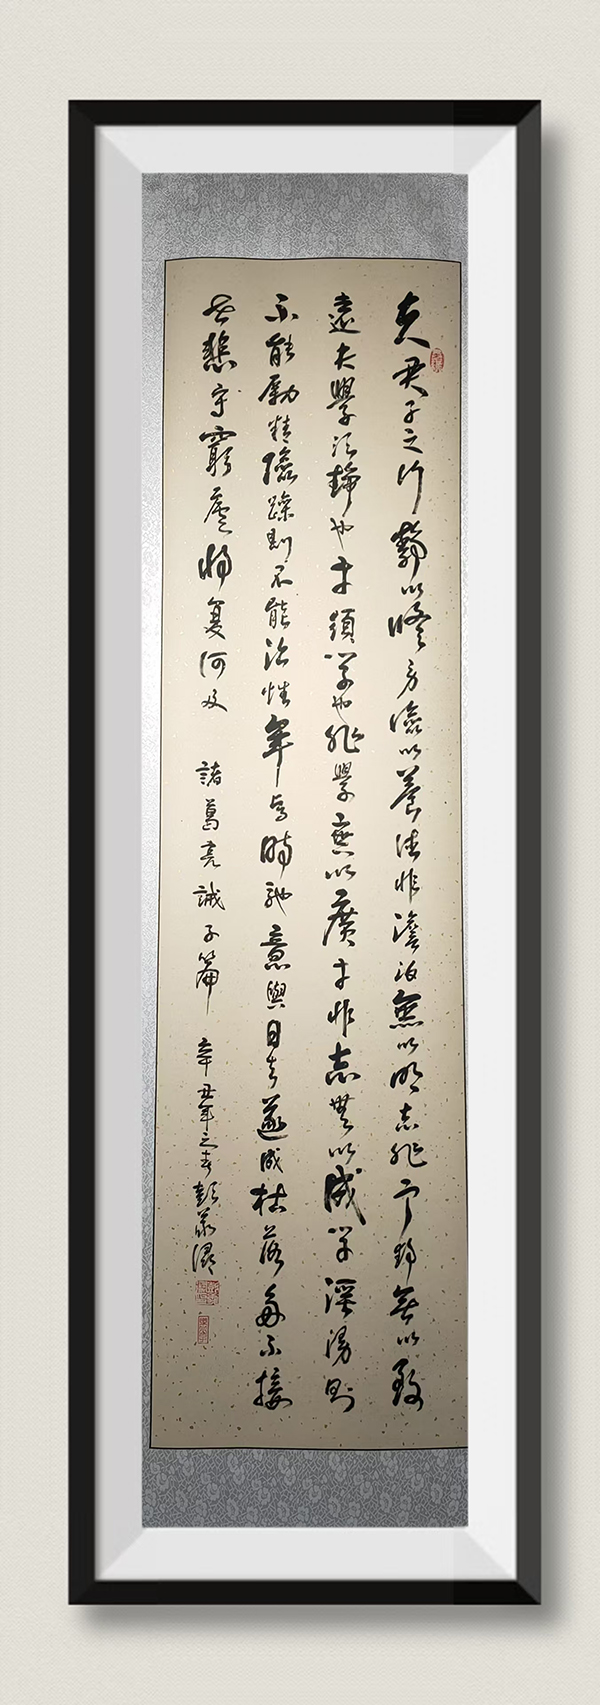 夫君子之行静以修身儉以養德非澹泊無以明志非宁静無以致
遠夫學须静也才須学也非學無以廣才非志無以成学深漫則
不能勵精險躁則不能治性年与時馳意與日去遂成枯落多不接
世悲守窮廬将复何及
諸葛亮誡子篇
辛丑年之春彭